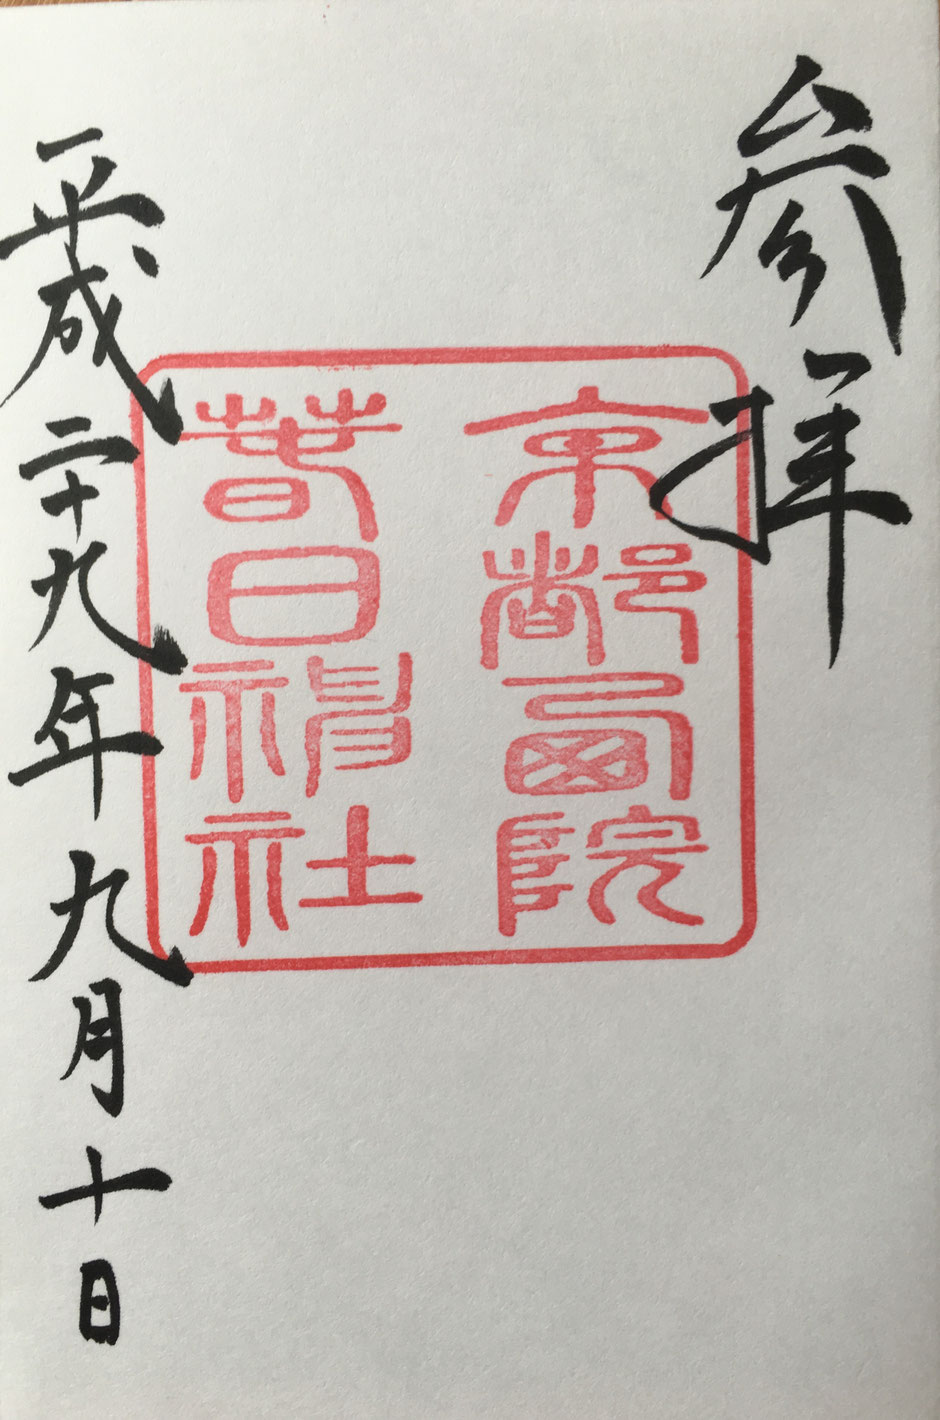 参拝
京都西院
春日神社
平成二十九年九月十日